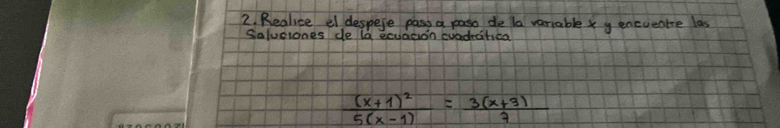 2. Realice el despeje paso a paso de la variable x y encuentre las
Soluciones de la ecuación cuadrática
(x+1)² / 5(x-1) = 3(x+3) / 7